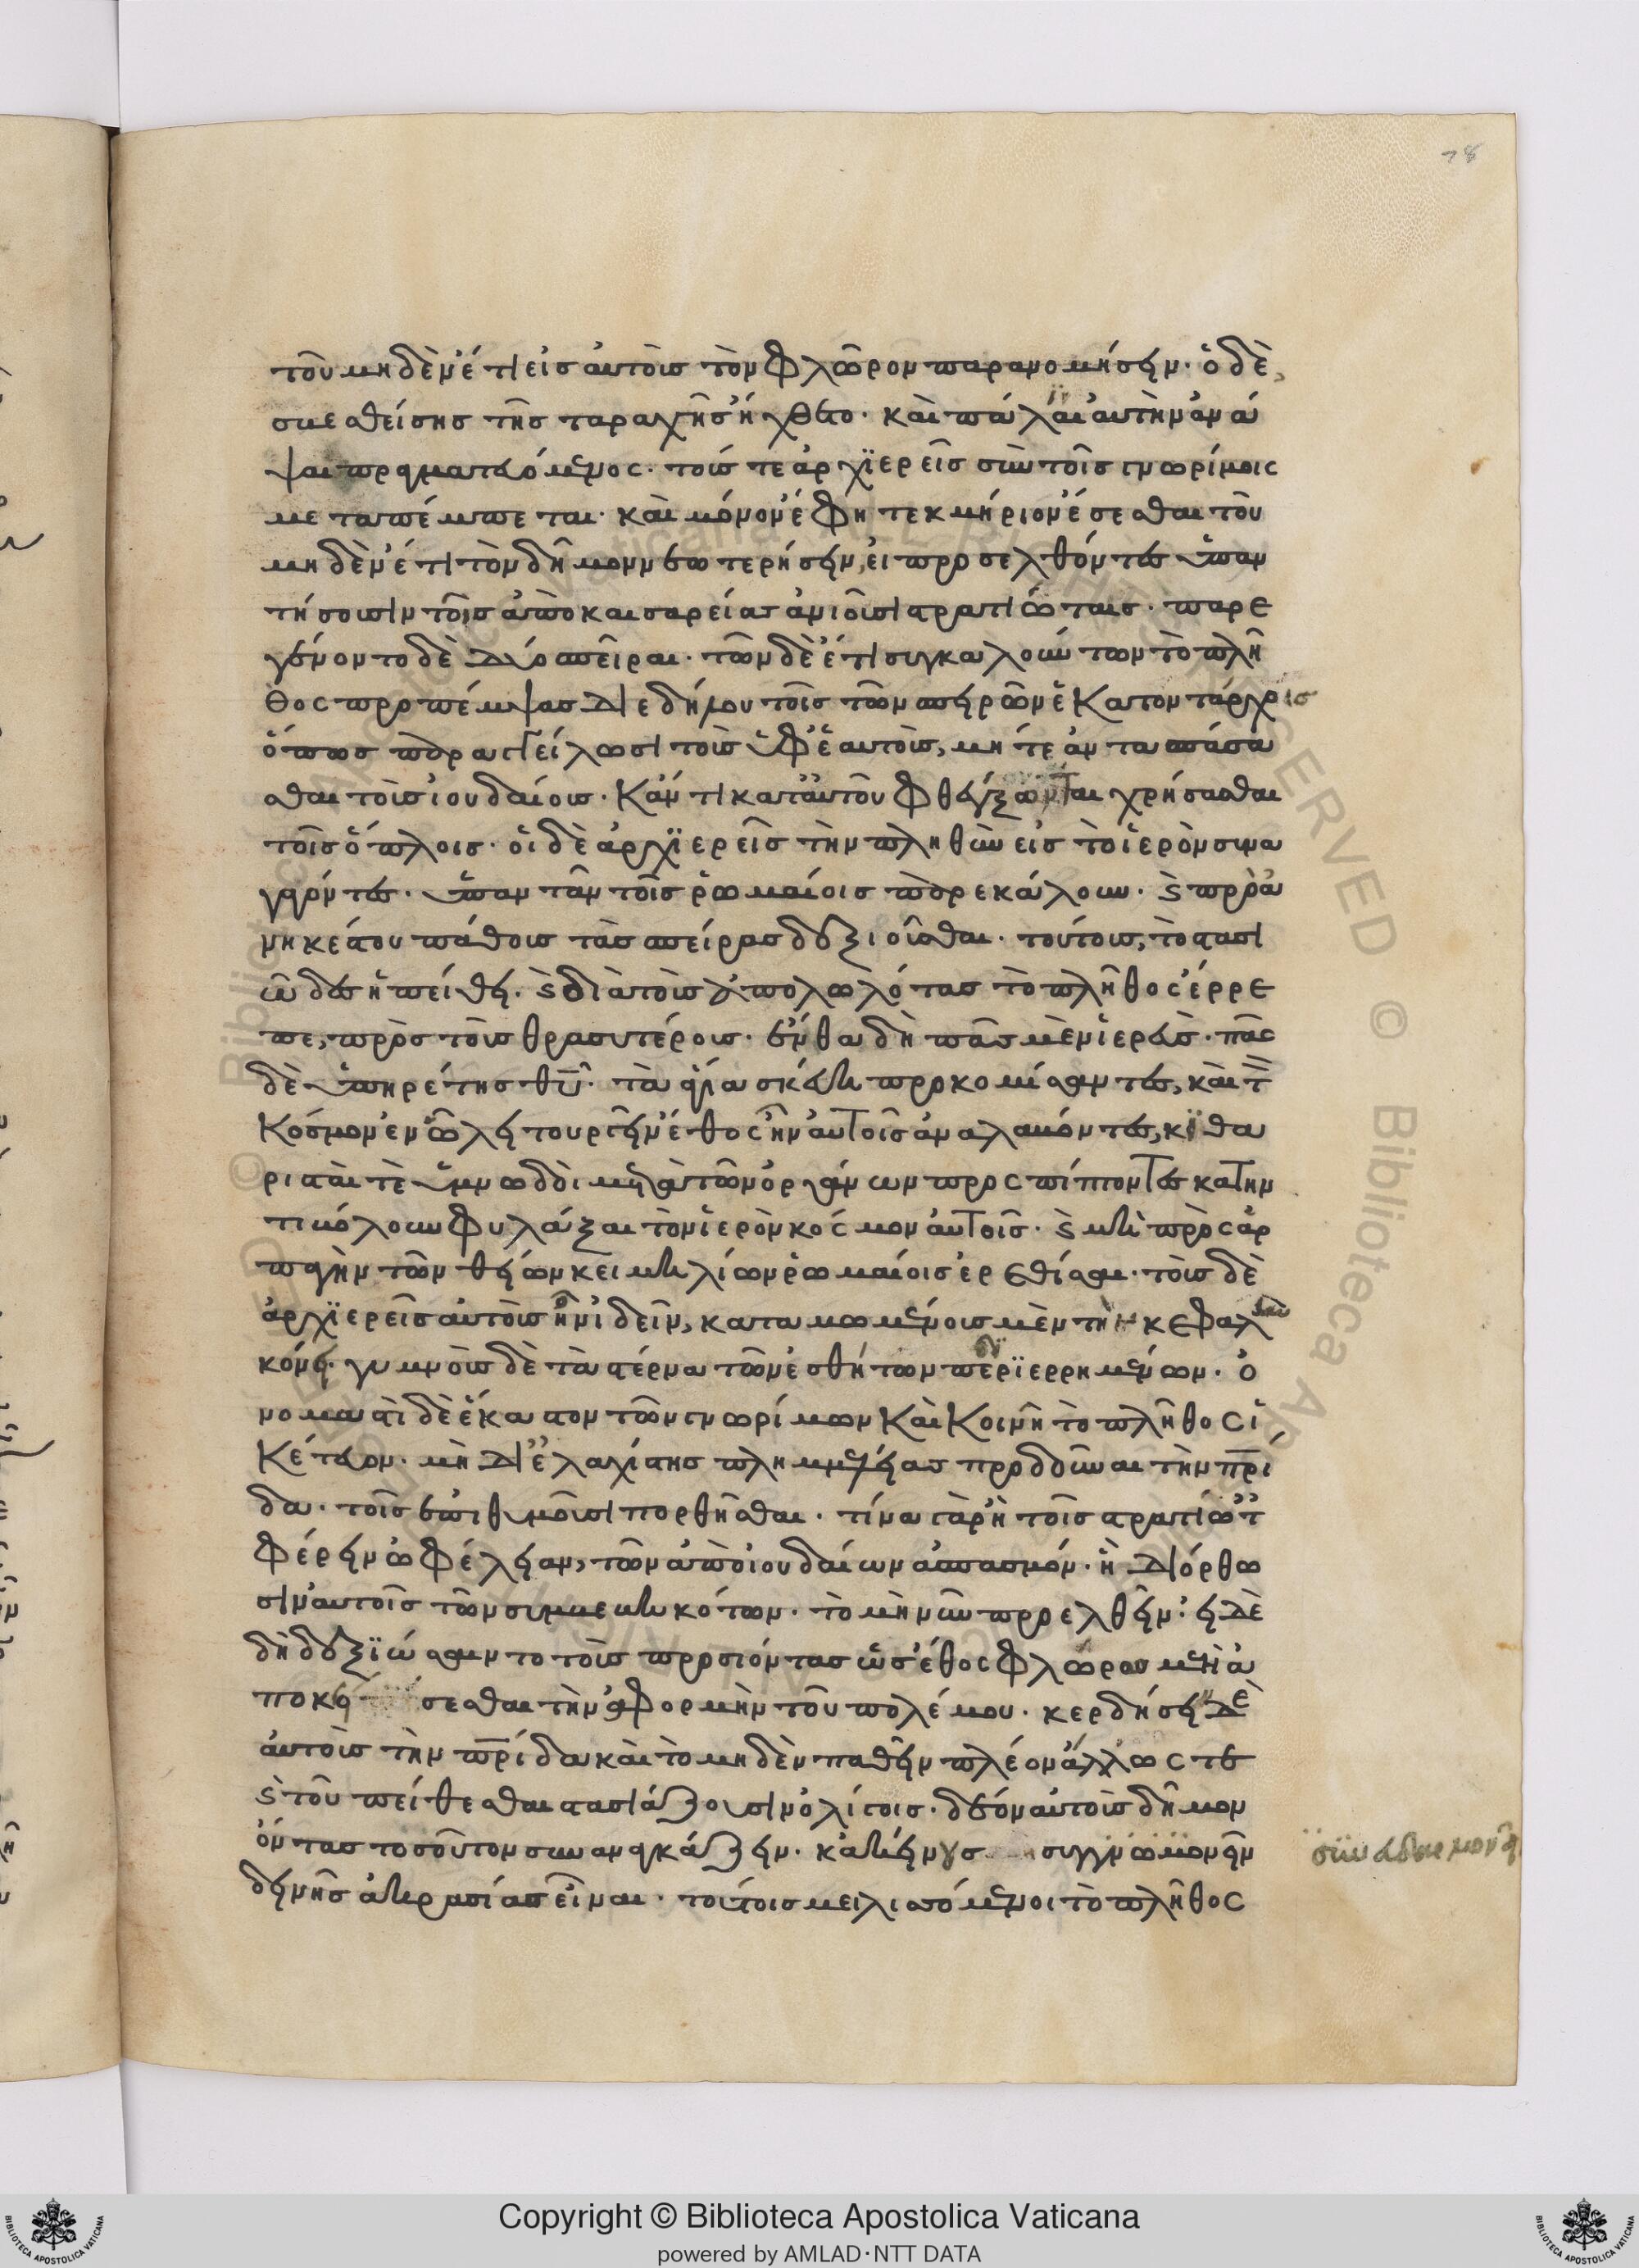 τοῦ μηδὲν ἔτι εἰς αὐτοὺς τὸν φλῶρον παρανομήσειν· ὁ δὲ
σβεσθείσης τῆς ταραχῆς ἤχθετο· καὶ πάλαι αὐτὴν ἀνά
ψαι πραγματευόμενος· τούς τε ἀρχϊερεῖς σὺν τοῖς γνωρίμοις
μεταπέμπεται· καὶ μόνον ἔφη τεκμήριον ἔσεσθαι τοῦ
μηδὲν ἔτι τὸν δῆμον νεωτερήσειν, εἰ προσελθόντες ὑπαν
τήσουσιν τοῖς ἀπὸ καισαρείας ἀνιοῦσι στρατιώταις· παρε
γένοντο δὲ δύο σπεῖραι· τῶν δὲ ἔτι συγκαλούντων τὸ πλῆ
θος προπέμψας διεδήλου τοῖς τῶν σπειρῶν ἑκατοντάρχοις
ὅπως παραγγείλωσι τοῖς ὑφ' ἑαυτοὺς, μήτε ἀντασπάσα
σθαι τοὺς ἰουδαίους· κἄν τι κατ' αὐτοῦ φθέγξωνται χρήσασθαι
τοῖς ὅπλοις· οἱ δὲ ἀρχϊερεῖς τὴν πληθὺν εἰς τὸ ἱερὸν συνα
γαγόντες· ὑπαντᾶν τοῖς ῥωμαίοις παρεκάλουν· καὶ πρὸ ἀ
νηκέστου πάθους τὰς σπείρας δεξιοῦσθαι· τούτοις, τὸ στασι
ῶδες ἠπείθει· καὶ διὰ τοὺς ἀπολωλότας τὸ πλῆθος ἔρρε
πε, πρὸς τοὺς θρασυτέρους· ἔνθα δὴ πᾶς μὲν ἱερεὺς· πᾶς
δὲ ὑπηρέτης θυ· τὰ ἅγια σκεύη προκομίσαντες, καὶ τ
κόσμον ἐν ὧ λειτουργεῖν ἔθος ἦν αὐτοῖς ἀναλαβόντες, κϊθα
ρισταί τε καὶ ὑμνωδοὶ μετὰ τῶν ὀργάνων προσπίπτοντες κατην
τιβόλουν φυλάξαι τὸν ἱερὸν κόσμον αὐτοῖς· καὶ μὴ πρὸς ἁρ
παγὴν τῶν θείων κειμηλίων ῥωμαίους ἐρεθίσαι· τοὺς δὲ
ἀρχϊερεῖς αὐτοὺς ἦν ἰδεῖν, καταμωμένους μὲν τὴν κεφαλὴν
κόνει· γυμνοὺς δὲ τὰ στέρνα τῶν ἐσθήτων περϊερρημένων· ὀ
νομαστὶ δὲ ἕκαστον τῶν γνωρίμων καὶ κοινῆ τὸ πλῆθος ἱ
κέτευον· μὴ δι' ἐλαχίστης πλημμελείας προδοῦναι τὴν πρί
δα· τοῖς ἐπιθυμοῦσι πορθῆσθαι· τίνα γὰρ ἢ τοῖς στρατιώτ
φέρειν ὠφέλειαν, τῶν ἀπὸ ἰουδαίων ἀσπασμόν· ἢ διόρθω
σιν αὐτοῖς τῶν συμβεβηκότων· τὸ μὴ νῦν προελθεῖν· εἰ δὲ
δὴ δεξϊώσαιντο τοὺς προσιόντας ὡς ἔθος φλώρου μὲν ἀ
ποκε σεσθαι τὴν ἀφορμὴν τοῦ πολέμου· κερδήσειν δὲ
αὐτοὺς τὴν πρίδα καὶ τὸ μηδὲν παθεῖν πλέον ἄλλως τε
καὶ τοῦ πείθεσθαι στασιάζουσιν ὀλίγοις· δέον αὐτοὺς δῆμον
ὄντας τοσοῦτον συναναγκάζειν· συγγνωμονεῖν
δεινῆς εἶναι· τούτοις μειλισσόμενοι τὸ πλῆθος